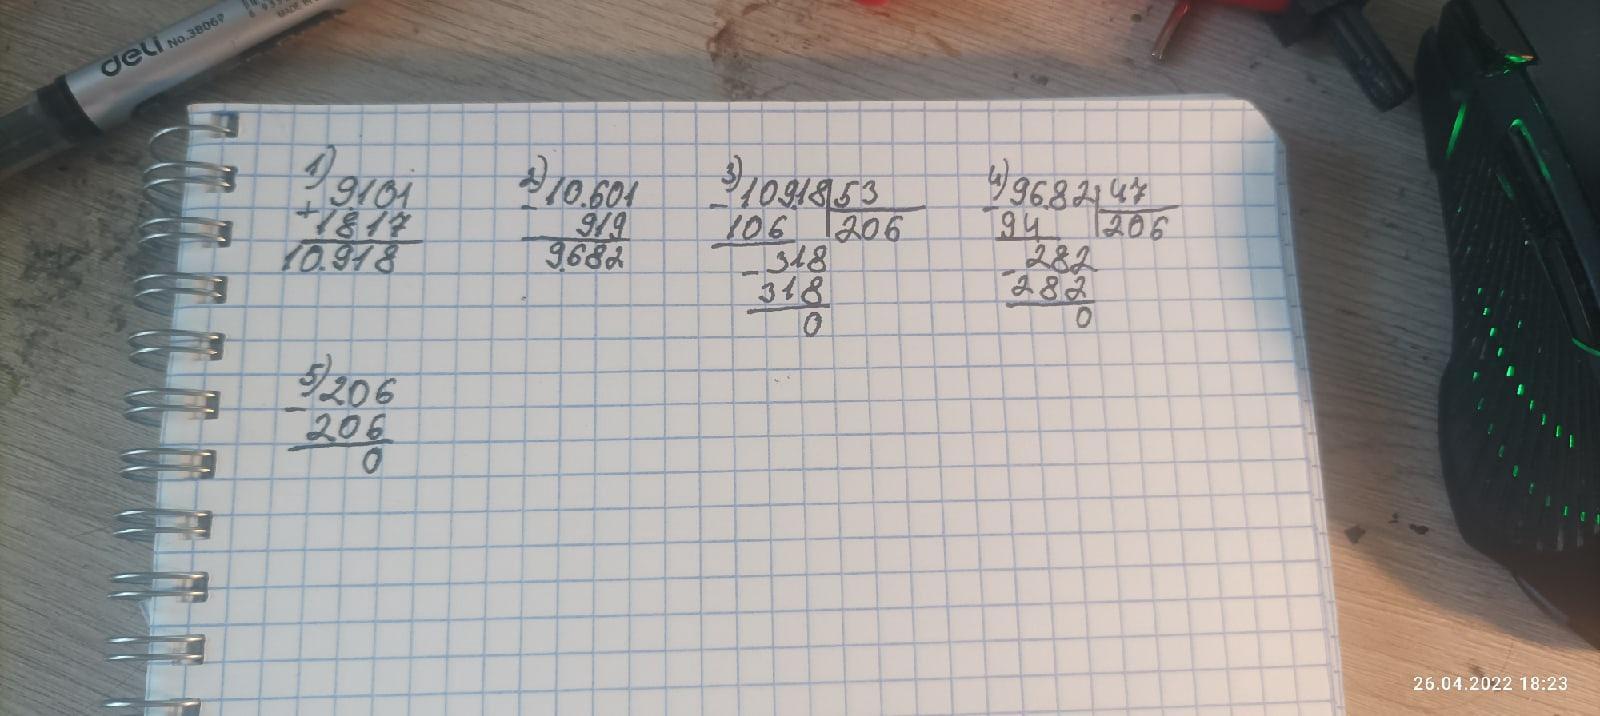 deli No.38069
1)
9101
+
1817
10.918
2)
10.601
-
919
9.682
3)
10918 53
-
106 206
-318
318
0
4)
9682 47
94 206
-282
282
0
5)
206
-
206
0
26.04.2022 18:23